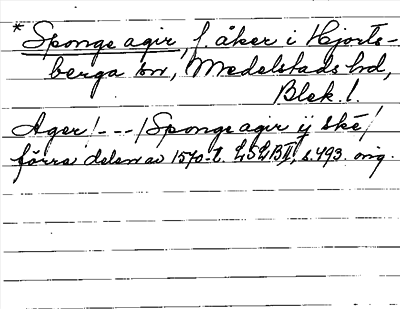 * Sponge agir, f. åker i Hjorts-
berga sn, Medelstads hd,
Blek. l.
Ager / - - - / Sponge agir ij ské /
förra delen av 1570-t. LSLB II, s. 493. orig.